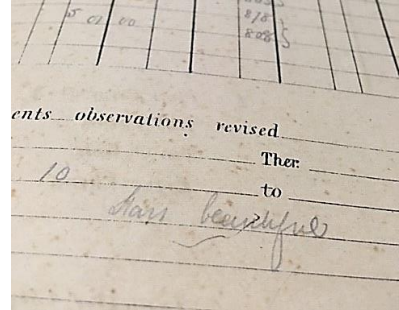 5 01 00 818
808
ents observations revised
Ther.
10 to
Stars beautiful